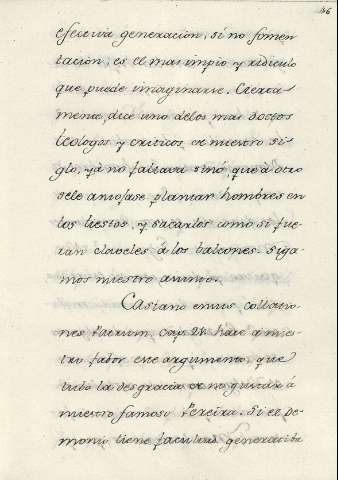 46
efectiva generacion, si no fomen
tacion; es el mas impio y ridiculo
que puede imaginarse. Certa
mente, dice uno delos mas doctos
teologos y criticos de nuestro si
glo, yá no faltava sinó, que á otro
sele antojase plantar hombres en
los tiestos, y sacarlos como si fue
ran claveles á los balcones. Siga
mos nuestro animo.
Casiano en sus collatio
nes Patrum. Cap. 21. hace á nues
tro fabor este argumento, que
tubo la desgracia de no gustar á
nuestro famoso Pereira. Si el De
monio tiene facultad generativa